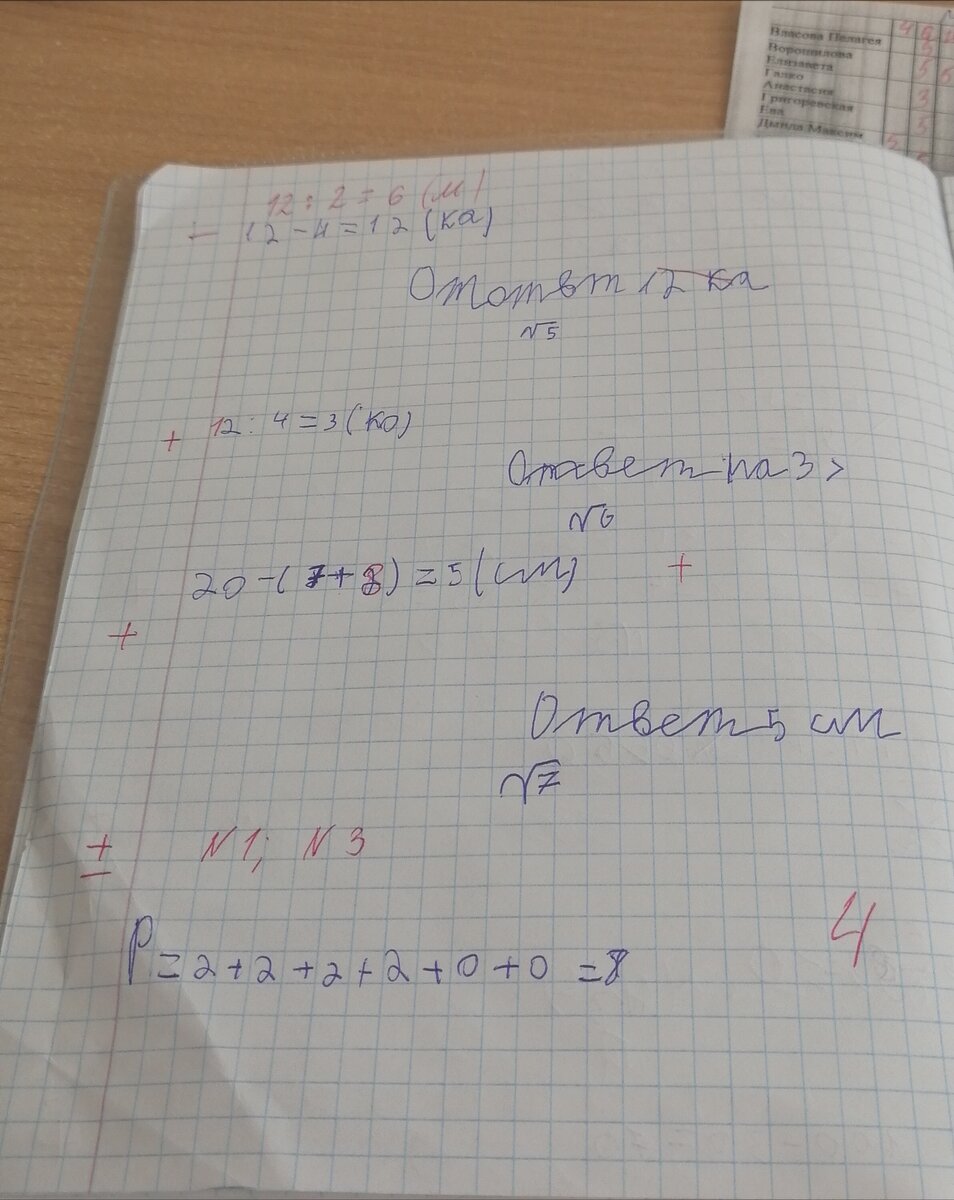 Власова Пелагея 4
Ворошилова
Елизавета 5 5
Галко
Анастасия 3
Григоревская
Ева 5
Дмида Максим 5
12 : 2 = 6 (м)
- 12 - 4 = 12 (ка)
Ототвт 12 ка
№5
+ 12 : 4 = 3 (ко)
Ответ на 3 >
№6
20 - (7 + 8) = 5 (см) +
+
Ответ 5 см
№7
± N1; N3
4
P = 2 + 2 + 2 + 2 + 0 + 0 = 8